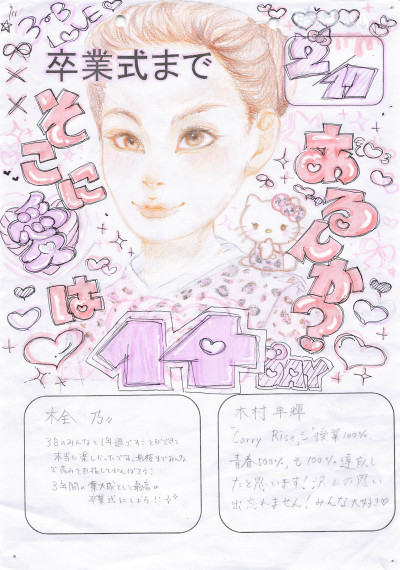 3-B
LOVE
卒業式まで
2/17
そこに
愛
は
あるんか?
14
DAY
木全
3Bのみんなと1年過ごすことができて
本当に楽しかったです。最後までみんな
で がんばろう!
3年間の集大成として最高の
卒業式にしよう!!
木村
"Carry Rise 授業100%
青春500% も100%達成し
たと思います!沢山の思い
出忘れません!みんな大好き♡